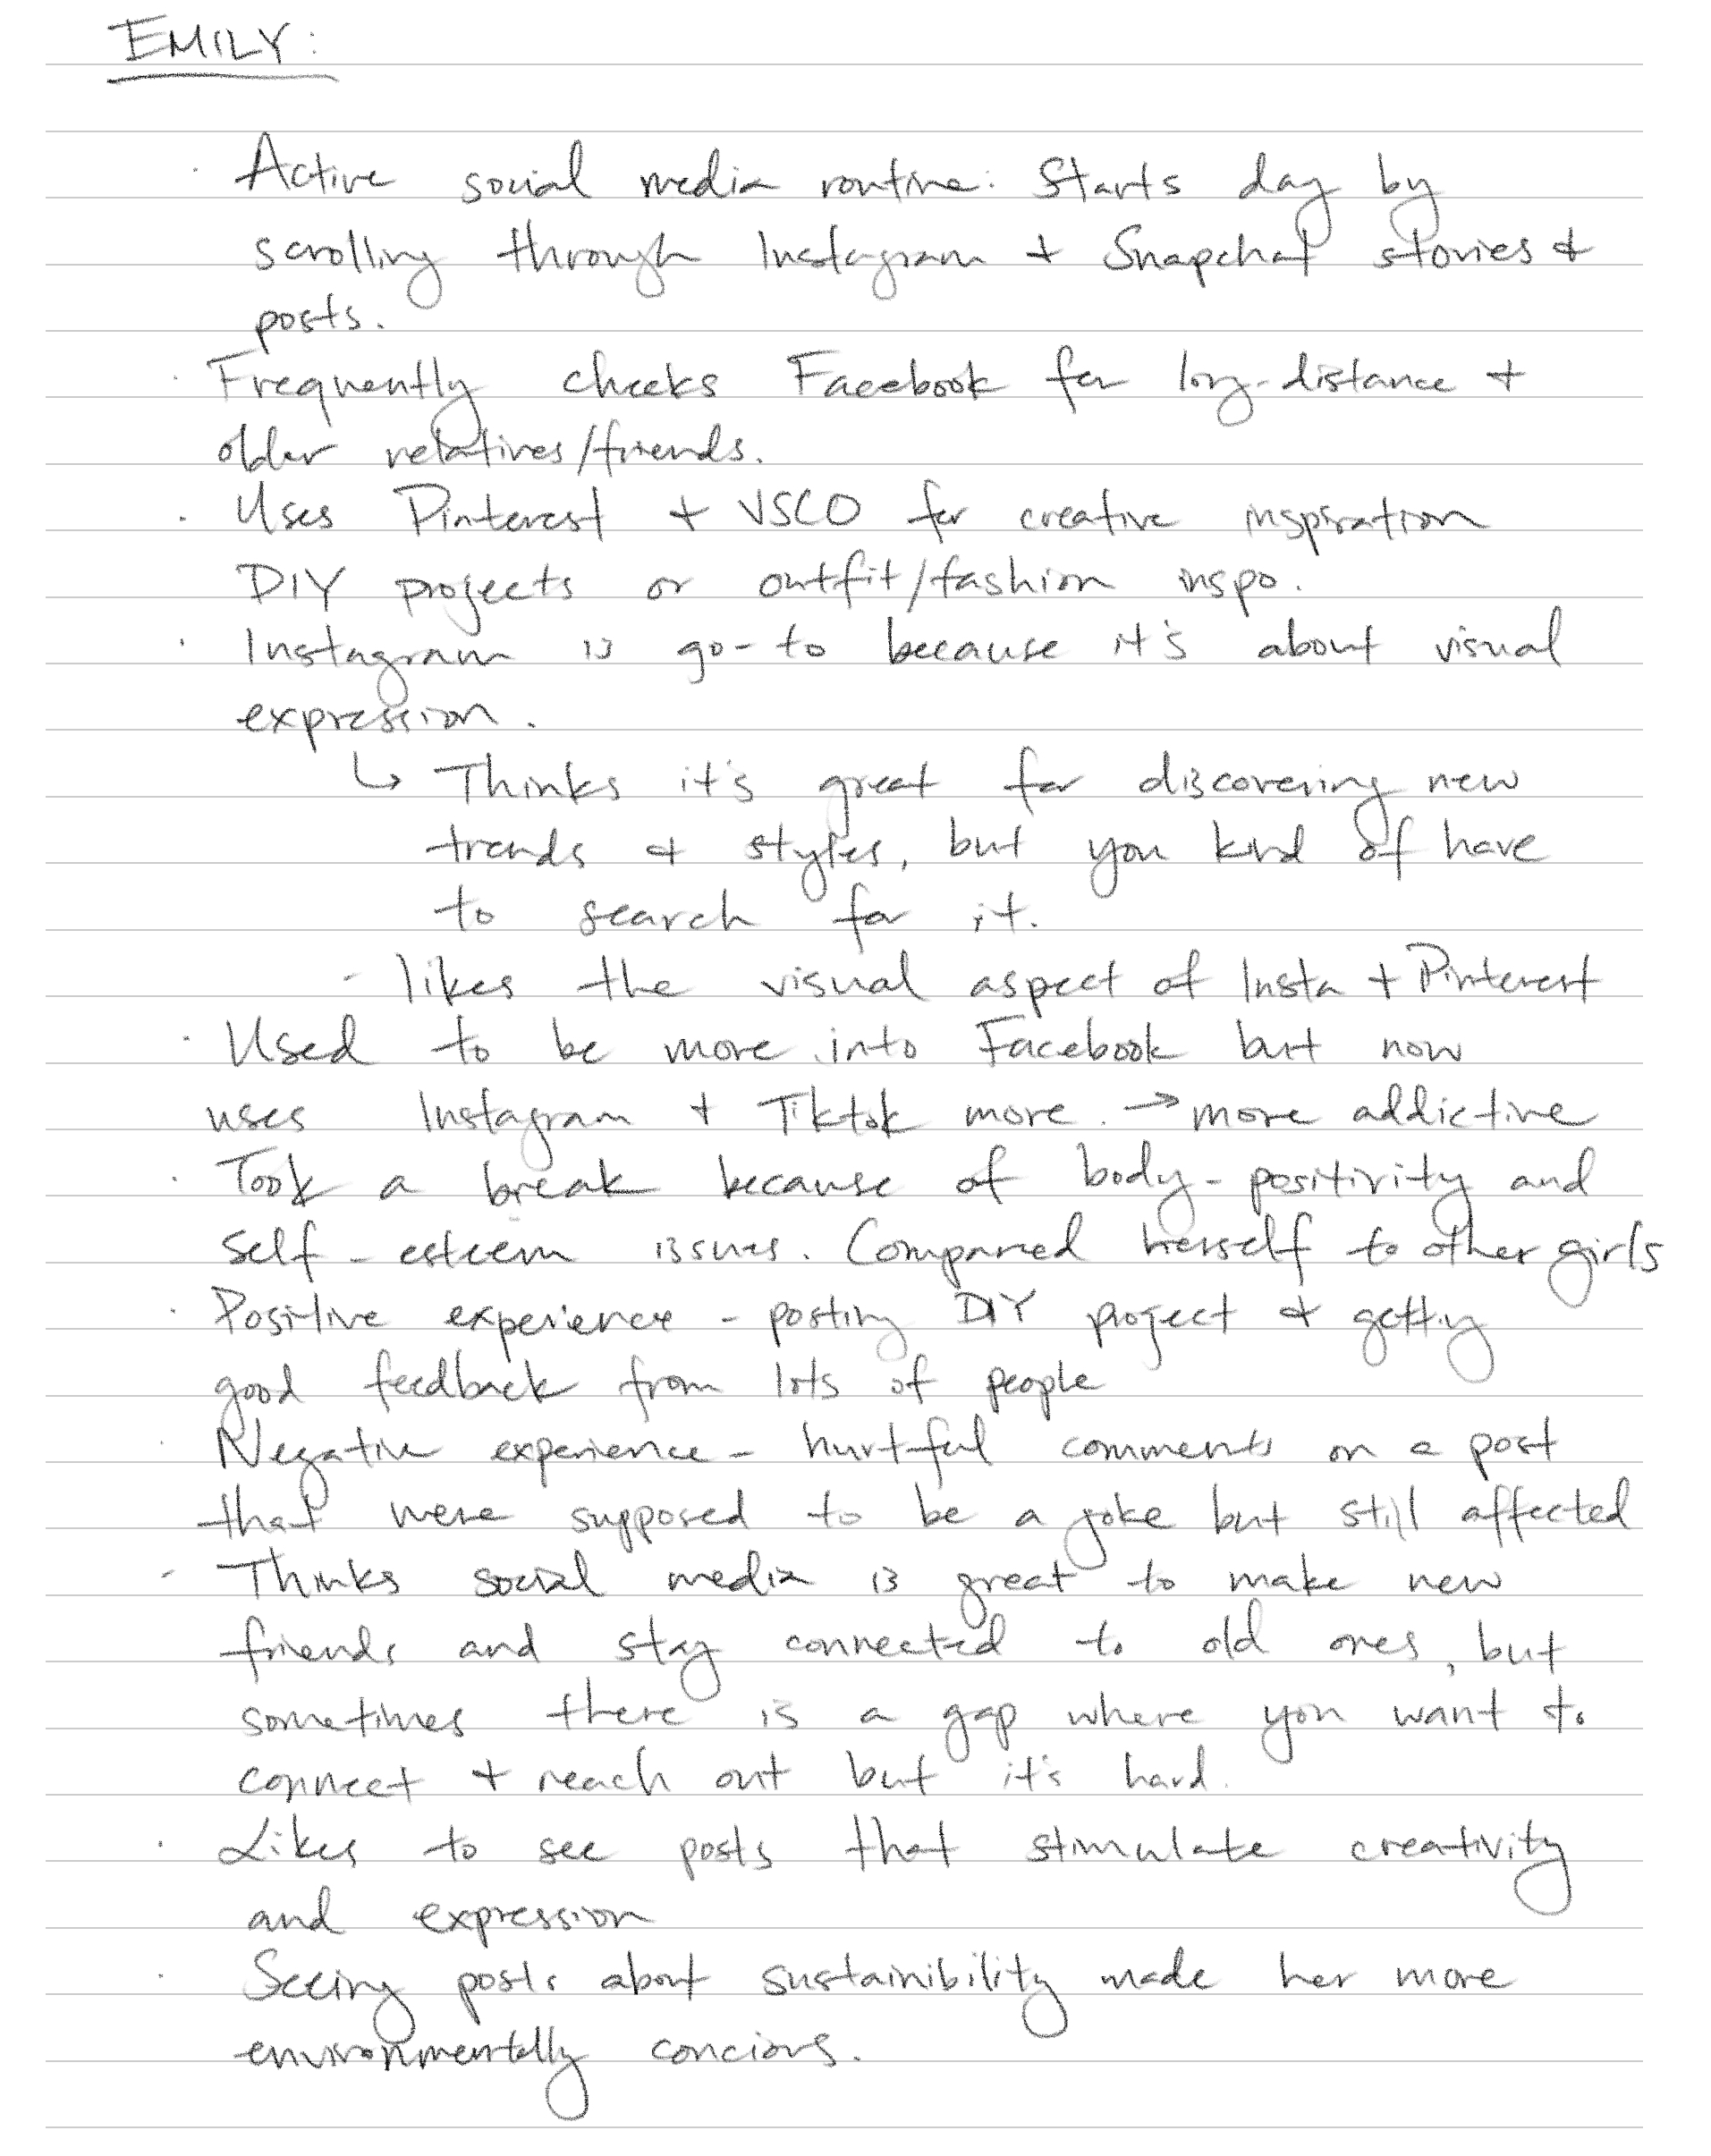 EMILY:
· Active social media routine: Starts day by
scrolling through Instagram + Snapchat stories +
posts.
· Frequently checks Facebook for long-distance +
older relatives/friends.
· Uses Pinterest + VSCO for creative inspiration
DIY projects or outfit/fashion inspo.
· Instagram is go-to because it's about visual
expression.
↳ Thinks it's great for discovering new
trends + styles, but you kind of have
to search for it.
- likes the visual aspect of Insta + Pinterest
· Used to be more into Facebook but now
uses Instagram + Tiktok more. → more addictive
· Took a break because of body-positivity and
self-esteem issues. Compared herself to other girls
· Positive experience - posting DIY project + getting
good feedback from lots of people
· Negative experience - hurtful comments on a post
that were supposed to be a joke but still affected
- Thinks social media is great to make new
friends and stay connected to old ones, but
sometimes there is a gap where you want to
connect + reach out but it's hard.
· Likes to see posts that stimulate creativity
and expression
· Seeing posts about sustainibility made her more
environmentally concious.